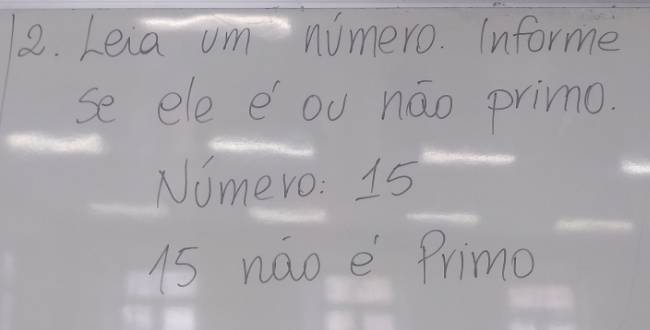 12. Leia um número. Informe
se ele é ou não primo.
Número: 15
15 não é Primo